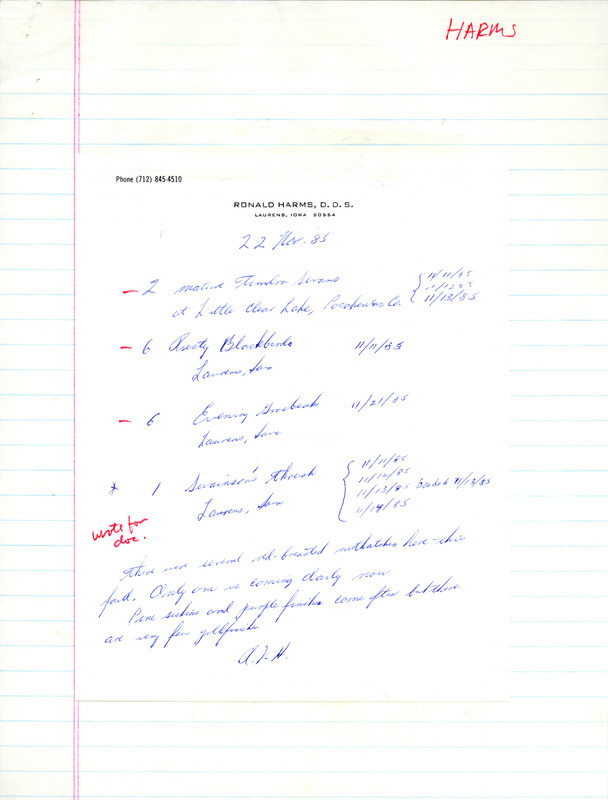 HARMS
Phone (712) 845-4510
RONALD HARMS, D.D.S.
LAURENS, IOWA 50554
22 Nov. 85
– 2 mature Swans 11/11/85
at Little Clear Lake, Pocahontas Co. 11/12/85
11/13/85
– 6 Rusty Blackbirds 11/11/85
Laurens, Iowa
– 6 Evening Grosbeaks 11/21/85
Laurens, Iowa
* 1 Swainson's Thrush 11/11/85
Laurens, Iowa 11/12/85
11/13/85 Banded 11/13/85
11/14/85
wrote for
doc.
There were several red-breasted nuthatches here this
fall. Only one is coming daily now
Pine siskins and purple finches come often but there
are very few goldfinches
R.I.H.